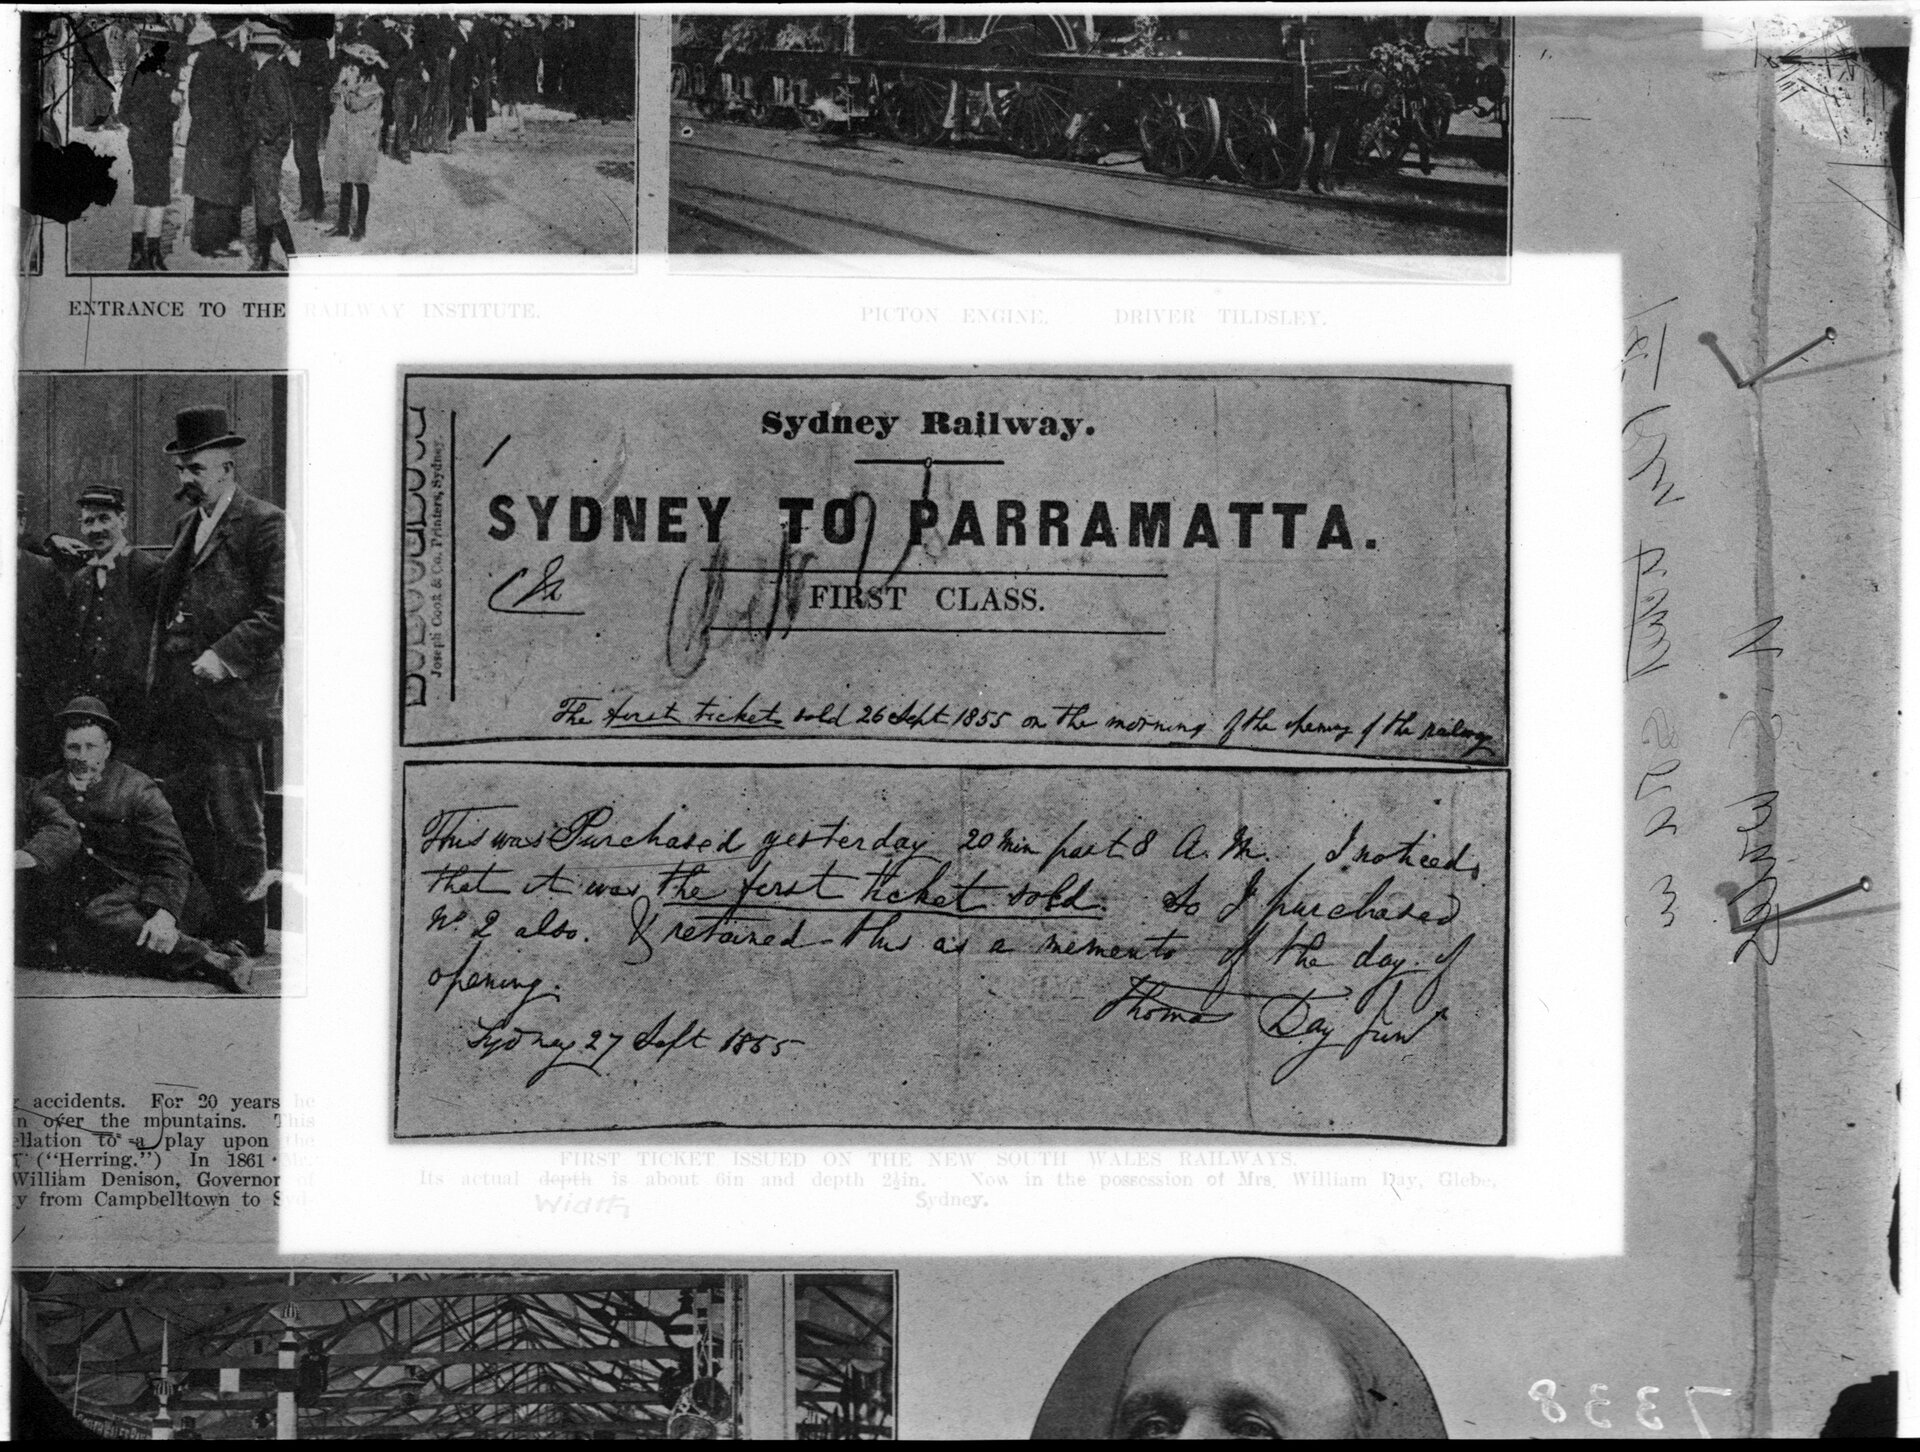 ENTRANCE TO THE RAILWAY INSTITUTE.
PICTON ENGINE. DRIVER TILDSLEY.
Sydney Railway.
SYDNEY TO PARRAMATTA.
FIRST CLASS.
Joseph Cook & Co. Printers, Sydney.
The first ticket sold 26 Sept 1855 on the morning of the opening of the railway
This was Purchased yesterday 20 min past 8 A.M. I noticed
that it was the first ticket sold. So I purchased
No. 2 also. & retained this as a memento of the day of
opening.
Thomas Day Junr
Sydney 27 Sept 1855
accidents. For 20 years he
n over the mountains. This
ellation to a play upon the
("Herring.") In 1861 Mr.
William Denison, Governor of
y from Campbelltown to Syd-
FIRST TICKET ISSUED ON THE NEW SOUTH WALES RAILWAYS.
Its actual depth is about 6in and depth 2½in. Now in the possession of Mrs. William Day, Glebe,
Width
Sydney.
7338